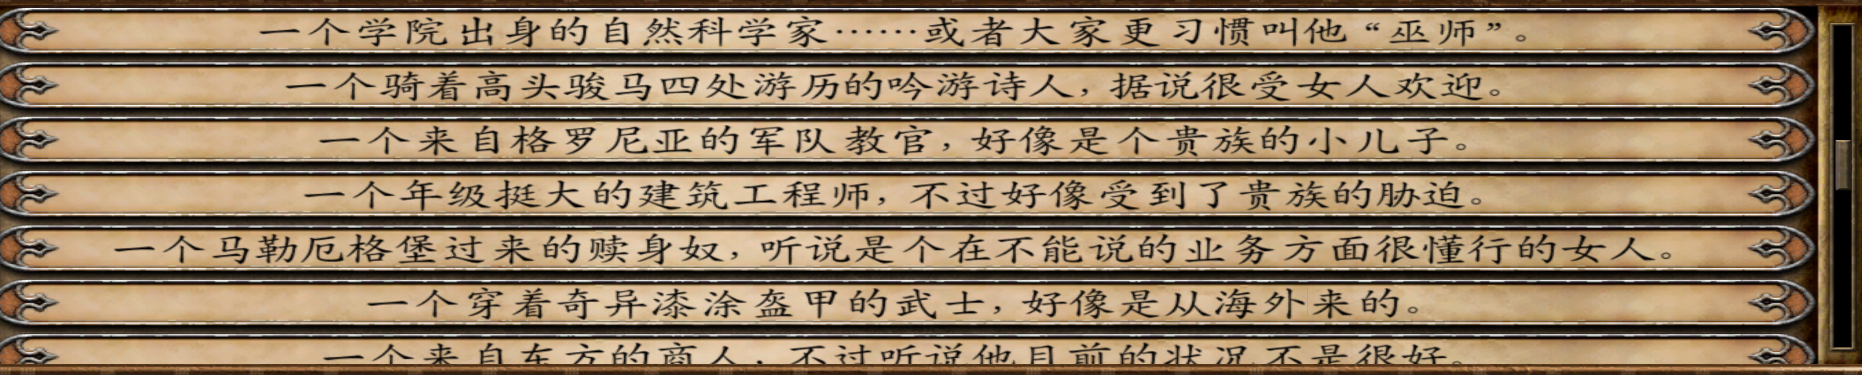 一个学院出身的自然科学家……或者大家更习惯叫他“巫师”。
一个骑着高头骏马四处游历的吟游诗人，据说很受女人欢迎。
一个来自格罗尼亚的军队教官，好像是个贵族的小儿子。
一个年级挺大的建筑工程师，不过好像受到了贵族的胁迫。
一个马勒厄格堡过来的赎身奴，听说是个在不能说的业务方面很懂行的女人。
一个穿着奇异漆涂盔甲的武士，好像是从海外来的。
一个来自东方的商人，不过听说他目前的状况不是很好。